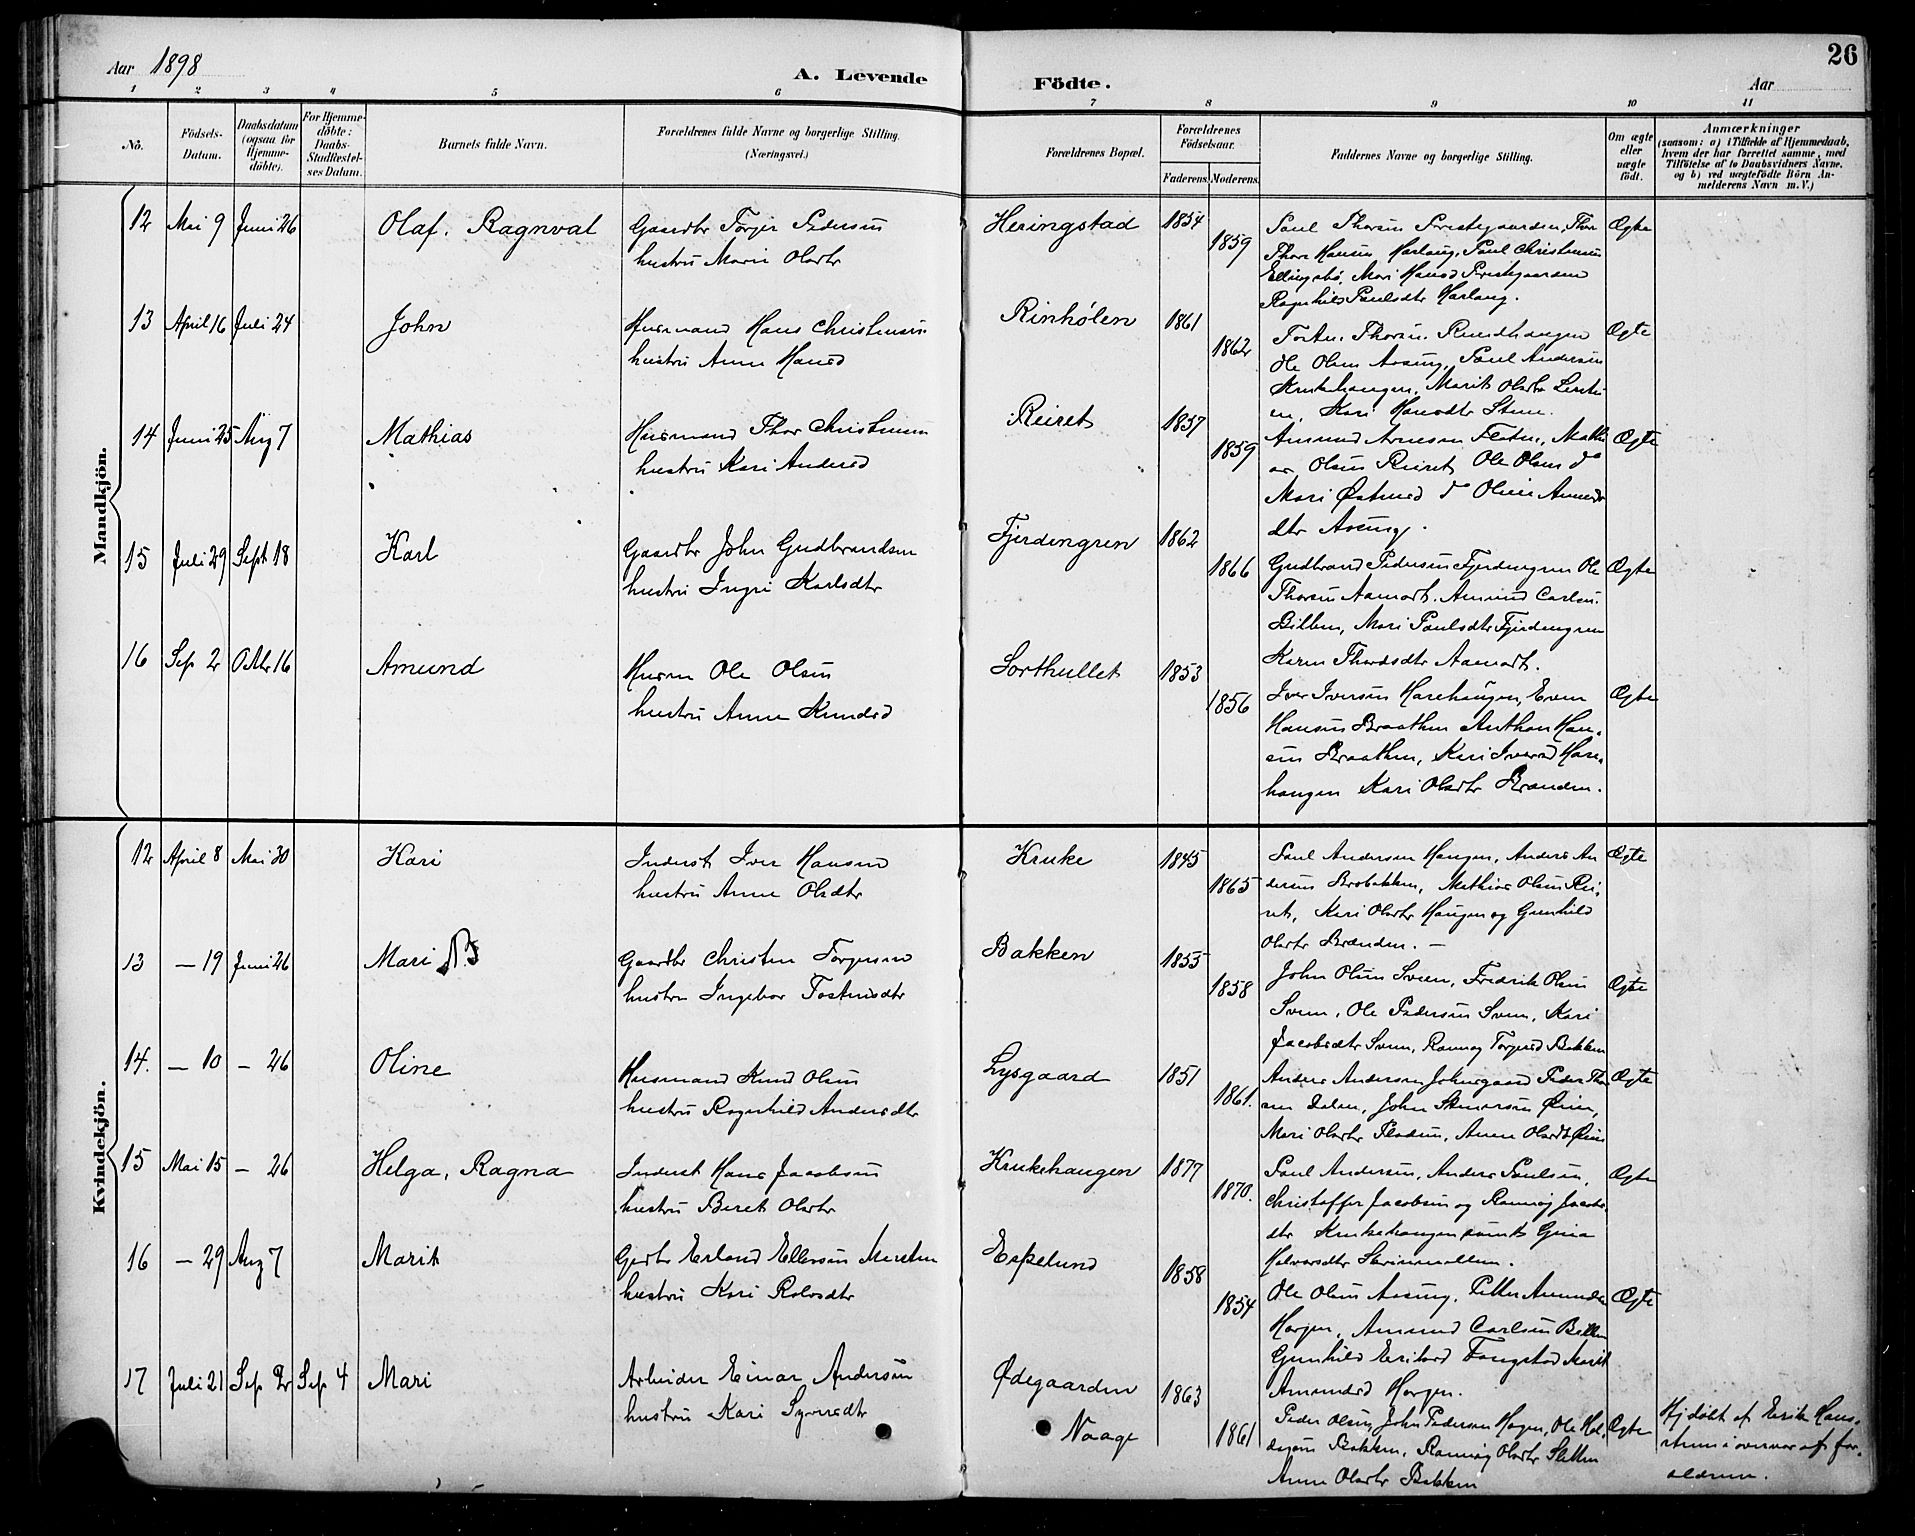 Aar 1898
A. Levende
Födte.
Aar
26
1 2 3 4 5 6 7 8 9 10 11
No.
Födsels-Datum.
Daabsdatum (ogsaa for Hjemme-döbte).
For Hjemme-döbte: Daabs-Stadfæstel-ses Datum.
Barnets fulde Navn.
Forældrenes fulde Navne og borgerlige Stilling. (Næringsvei.)
Forældrenes Bopæl.
Forældrenes Födselsaar.
Faderens. Moderens.
Faddernes Navne og borgerlige Stilling.
Om ægte eller uægte födt.
Anmærkninger
(saasom: a) i Tilfælde af Hjemmedaab, hvem der har forrettet samme, med Tilföielse af to Daabsvidners Navne, og b) ved uægtefödte Börn An-melderens Navn m. V.)
Mandkjön.
12 Mai 9 Juni 26 Olaf. Ragnval Gaardbr Torger Pedersen Heringstad 1854 Ægte
hustru Mari Olsdtr 1859
Thore Hansen Harlaug, Paul Christensen
Mari Hansd Prestegaarden
Ragnhild Paulsdtr Harlaug.
13 April 16 Juli 24 John Husmand Hans Christensen Rinhölen 1861 Ægte
hustru Anne Hansd 1862
Ole Olsen Aasung, Paul Andersen
Krukehaugen, Marit Olsdtr
Kari Hansdtr Steen.
14 Juni 25 Aug 7 Mathias Husmand Thor Christensen Reiret 1857 Amund Arnesen Ægte
hustru Kari Andersd 1859 Olsen Reiret Ole Olsen do
Mari Østensd do
dtr Aasung.
15 Juli 29 Sept 18 Karl Gaardbr John Gudbrandsen Fjerdingren 1862
hustru Ingri Karlsdtr 1866 Gudbrand Pedersen Fjerdingren Ole Ægte
Thorsen Aamodt. Amund Carlsen
Mari Paulsdtr Fjerdingren
Karen Thordsdtr Aamodt.
16 Sep 2 Oktbr 16 Amund Husm Ole Olsen Sorthullet 1853
hustru Anne Knudsd 1856 Iver Iversen Harehaugen, Even Ægte
Hansen Braathen Anthon Han-
sen Braathen, Kari Iversd Hare-
haugen Kari Olsdtr Brænden.
Kvindekjön.
12 April 8 Mai 30 Kari Inderst Iver Hansen Kruke 1845 Paul Andersen Haugen, Anders An Ægte
hustru Anne Olsdtr 1865 dersen Brobakken, Mathias Olsen Rei-
ret, Kari Olsdtr Haugen og Gunhild
Olsdtr Brænden. —
13 — 19 Juni 26 Mari Gaardbr Christen Torgersen Bakken 1855 John Olsen Sveen, Fredrik Olsen Ægte
hustru Ingebor Tostensdtr 1858 Sveen, Ole Pedersen Sveen, Kari
Jacobsdtr Sveen, Rannog Torgersd Bakken
14. — 10 — 26 Oline Husmand Knud Olsen Lysgaard 1851 Ægte
hustru Ragnhild Andersdtr 1861.
15 Mai 15 — 26 Helga, Ragna Inderst Hans Jacobsen Krukehaugen 1877 Paul Andersen, Anders Paulsen, Ægte
hustru Beret Olsdtr 1870. Christoffer Jacobsen og Rannog Jacobs-
dtr Krukehaugen samt Gina
Halvorsdtr
16 — 29 Aug 7 Marit Erland Ellevsen Espelund 1858
hustru Kari Rolvsdtr 1854 Ole Olsen Aasung, Petter Amundsen Ægte
Horgen, Amund Carlsen
Gunhild Eriksd Fangstad Marit
Amundsd Horgen.
17 Juli 21 Sep 2 Sep 4 Mari Arbeider Einar Andersen Ødegaarden 1863
hustru Kari Syversdtr Naage 1861 Peder Olsen, John Pedersen Hagen, Ole Hal- Ægte
Bakken, Rannog Olsdtr Sletten
Anne Olsdtr Bakken
Hj döbt af Erik Hans-
i overvær af for-
ældrene.